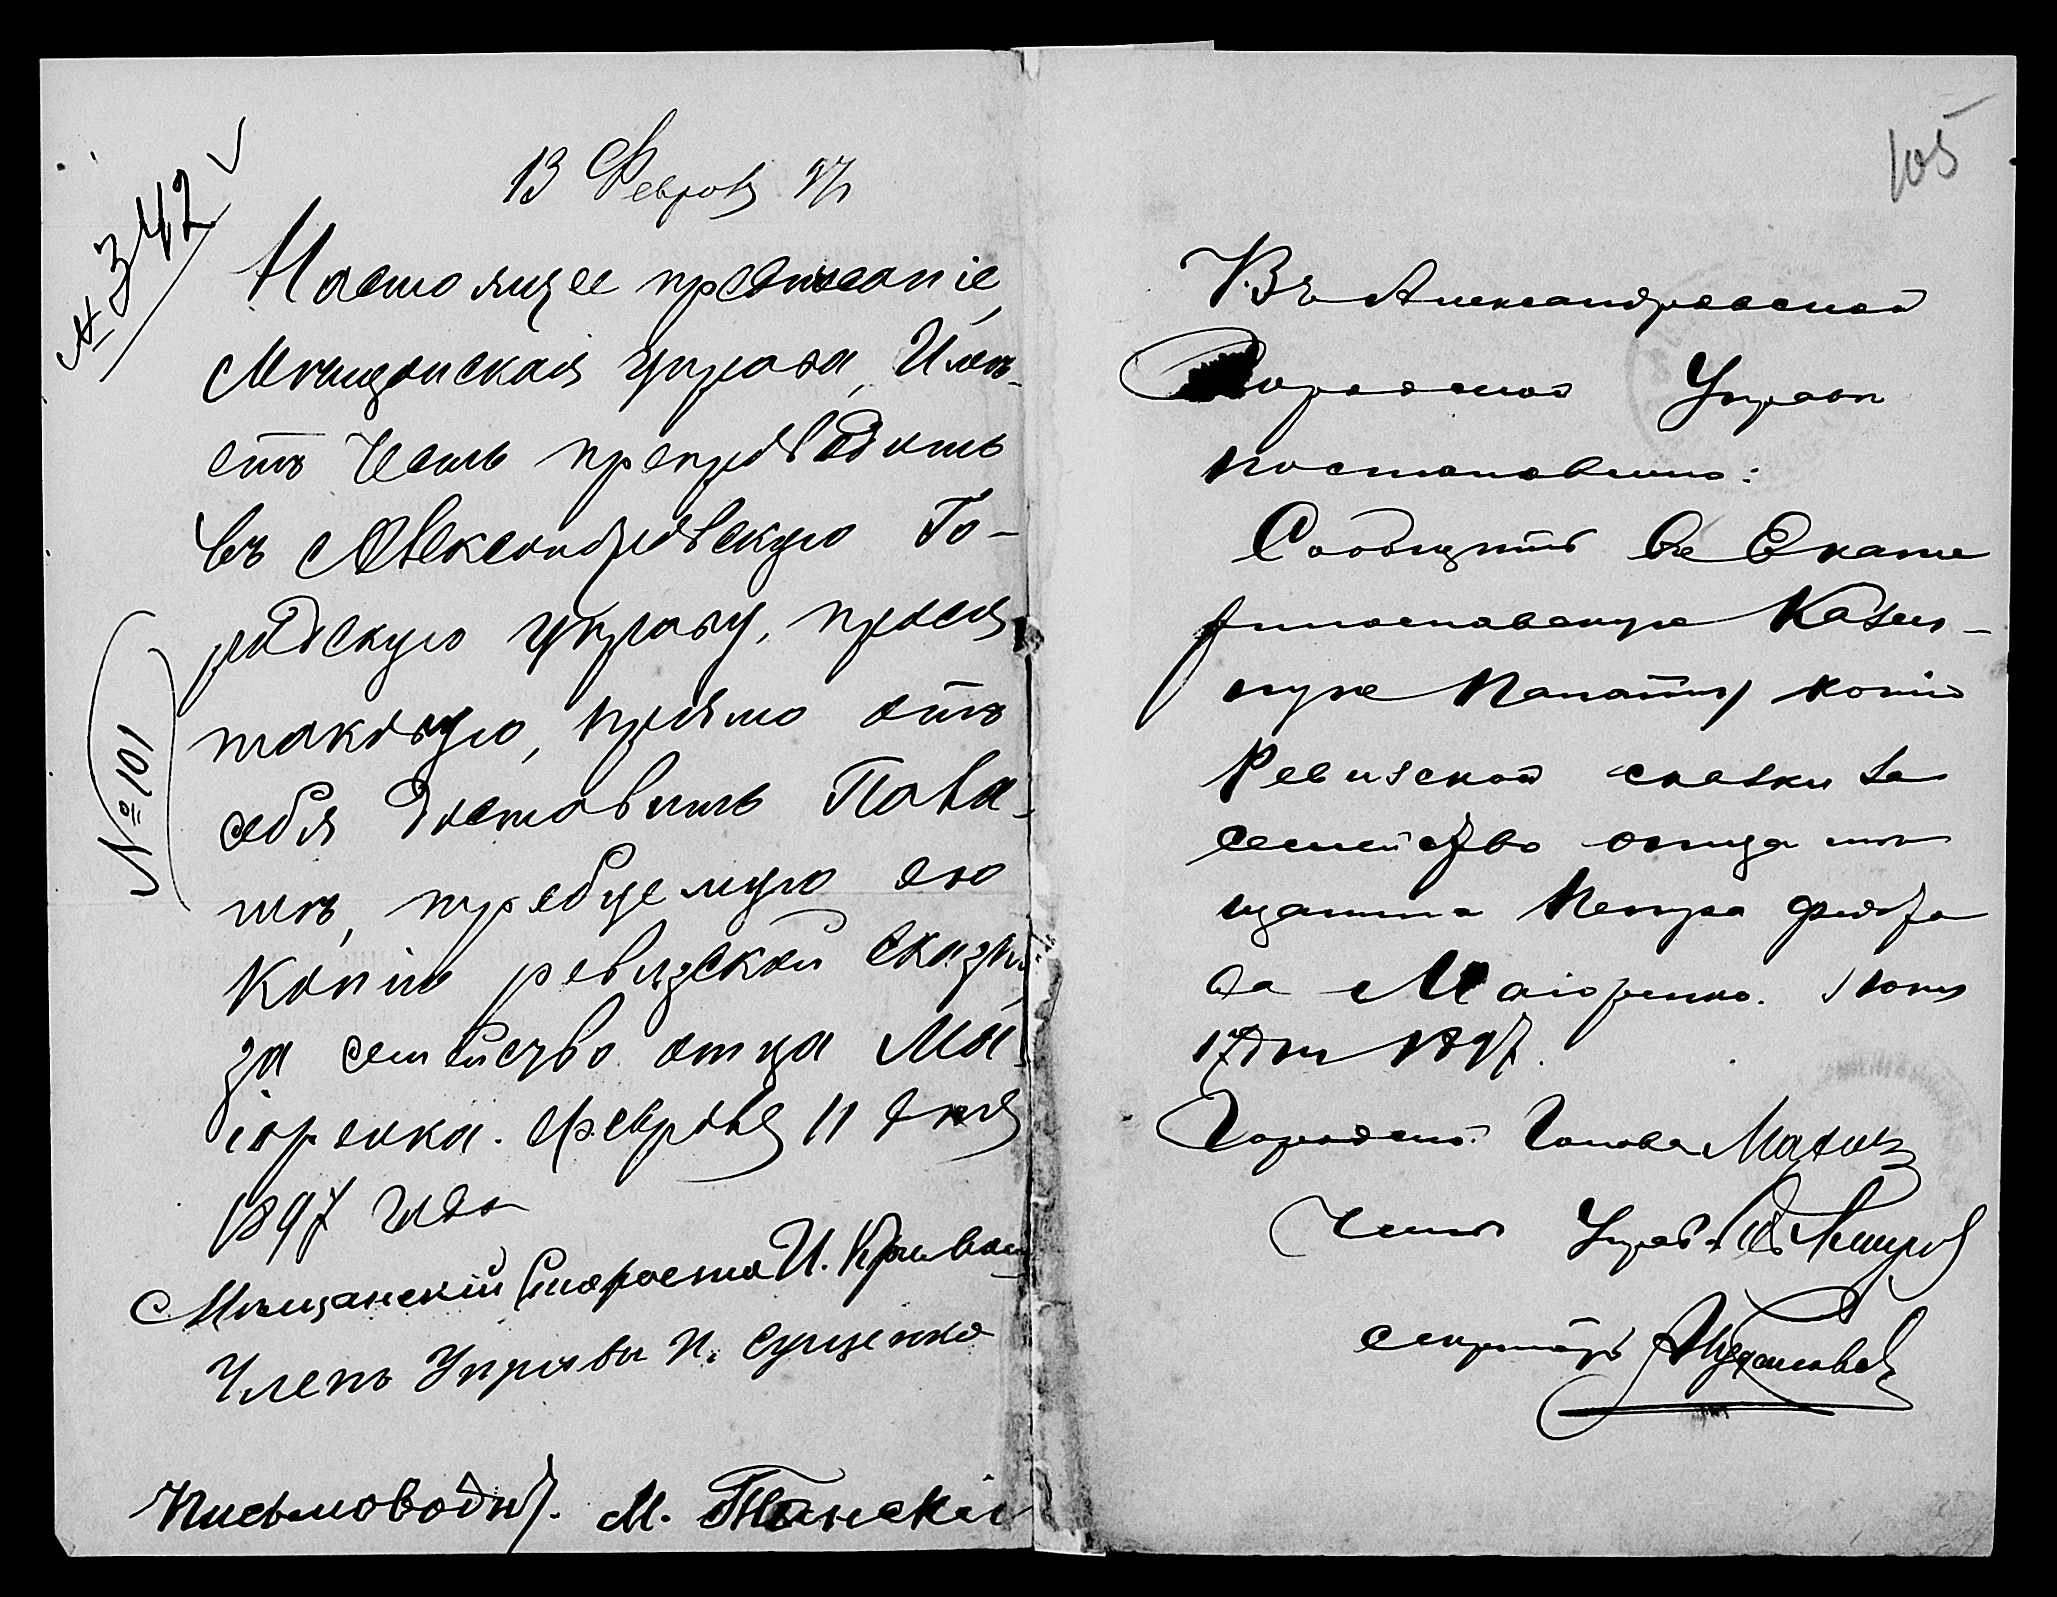 13 Февраля 97
№ 342
Настоящее предписаніе
Мѣщанская управа, Имѣ-
етъ честь препроводить
въ Александровскую Го-
родскую управу, прося
таковую, прямо отъ
себя доставить Пала-
тѣ, требуемую ею
№ 101
копію ревизской сказки
за семейство отца Ма-
іоренка. Февраля 11 дня
1897 года
Мѣщанскій Староста И.
Членъ Управы И. Сущенко
Письмоводит. М.
105
Въ Александровской
Городской Управѣ
постановлено:
Сообщить въ Екате
ринославскую Казен-
ную Палату копію
Ревизской сказки за
семейство отца мѣ
щанина Петра
ва Маіоренко.
17 дня 1897.
Городской Голова
Членъ Управы
Секретарь